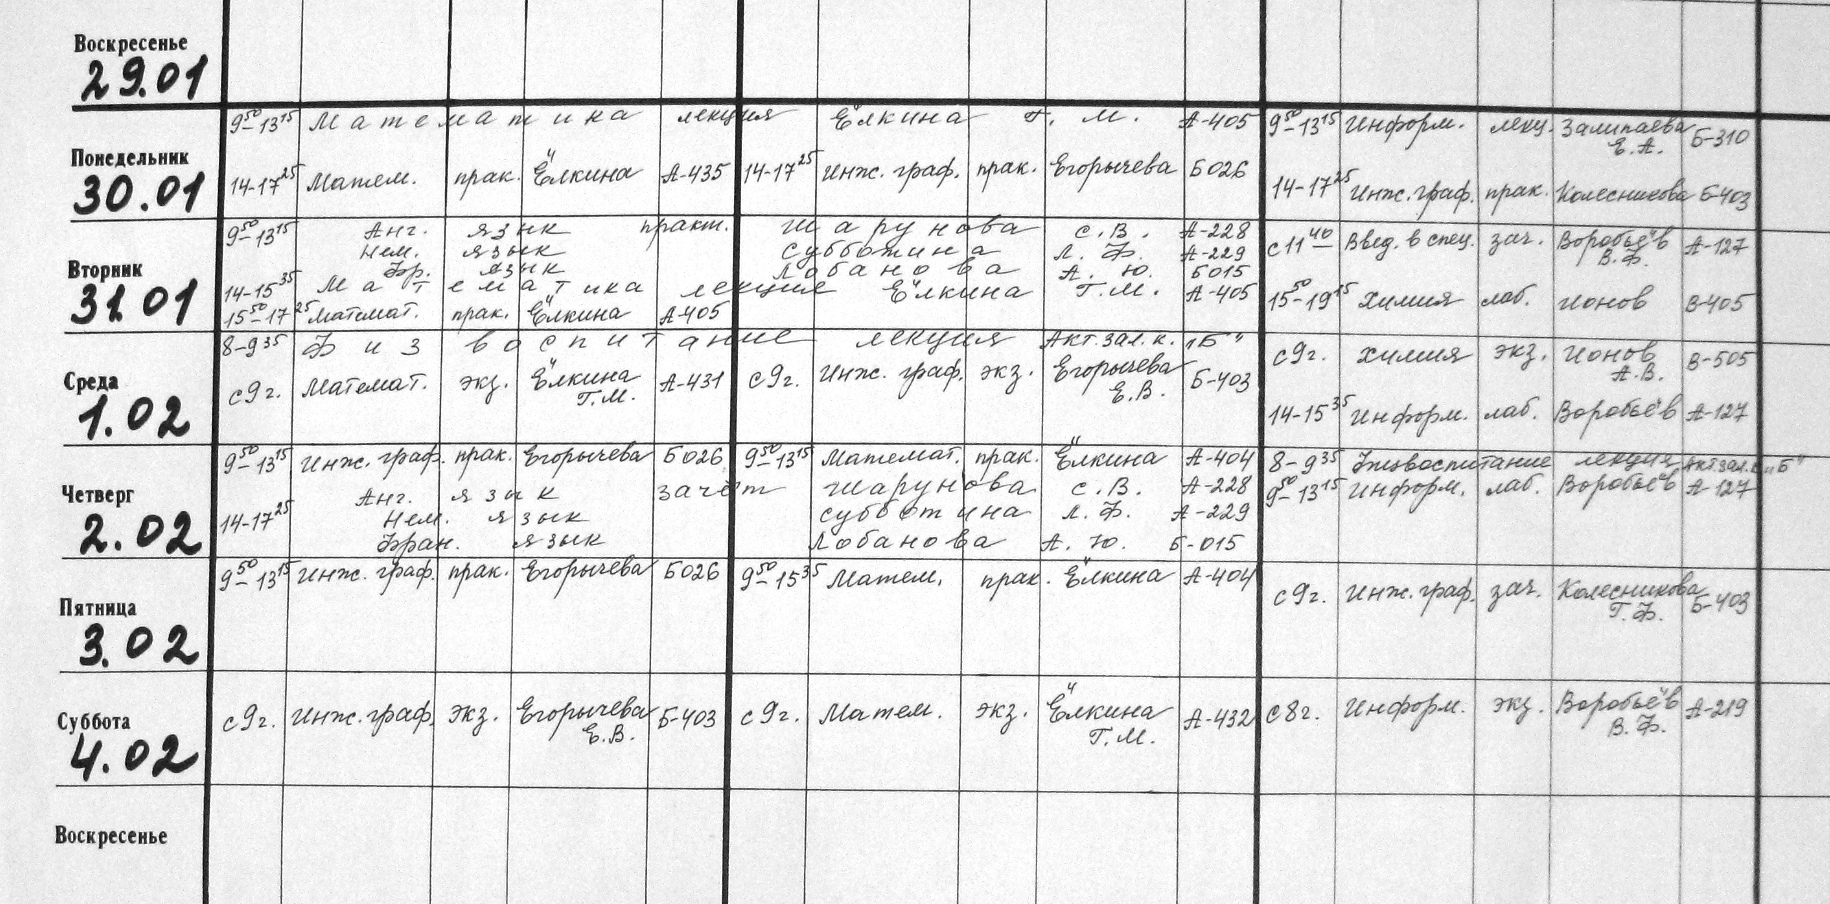 Воскресенье
29.01
Понедельник
30.01
9⁵⁰-13¹⁵ Математика лекция Ёлкина Г. М. А-405
14-17²⁵ Матем. прак. Ёлкина А-435
14-17²⁵ Инж. граф. прак. Егорычева Б026
9⁵⁰-13¹⁵ Информ. лекц. Залипаева Е.А. Б-310
14-17²⁵ Инж. граф. прак. Колесникова Б-403
Вторник
31.01
9⁵⁰-13¹⁵ Анг. язык практ. Шарунова С.В. А-228
Нем. язык Субботина Л. Ф. А-229
Фр. язык Лобанова А. Ю. Б015
14-15³⁵ Математика лекция Ёлкина Г.М. А-405
15⁵⁰-17²⁵ Математ. прак. Ёлкина А-405
с 11⁴⁰ Введ. в спец. зач. Воробьёв В.Ф. А-127
15⁵⁰-19¹⁵ Химия лаб. Ионов В-405
Среда
1.02
8-9³⁵ Физ воспитание лекция Акт. зал. к. "Б"
с 9 г. Математ. экз. Ёлкина Г.М. А-431
с 9 г. Инж. граф. экз. Егорычева Е.В. Б-403
с 9 г. Химия экз. Ионов А.В. В-505
14-15³⁵ Информ. лаб. Воробьёв А-127
Четверг
2.02
9⁵⁰-13¹⁵ Инж. граф. прак. Егорычева Б026
9⁵⁰-13¹⁵ Математ. прак. Ёлкина А-404
14-17²⁵ Анг. язык зачёт Шарунова С.В. А-228
Нем. язык Субботина Л. Ф. А-229
Фран. язык Лобанова А. Ю. Б-015
8-9³⁵ Физвоспитание лекция Акт. зал. к. "Б"
9⁵⁰-13¹⁵ Информ. лаб. Воробьёв А-127
Пятница
3.02
9⁵⁰-13¹⁵ Инж. граф. прак. Егорычева Б026
9⁵⁰-15³⁵ Матем. прак. Ёлкина А-404
с 9 г. Инж. граф. зач. Колесникова Г.Ф. Б-403
Суббота
4.02
с 9 г. Инж. граф. экз. Егорычева Е.В. Б-403
с 9 г. Матем. экз. Ёлкина Г.М. А-432
с 8 г. Информ. экз. Воробьёв В.Ф. А-219
Воскресенье